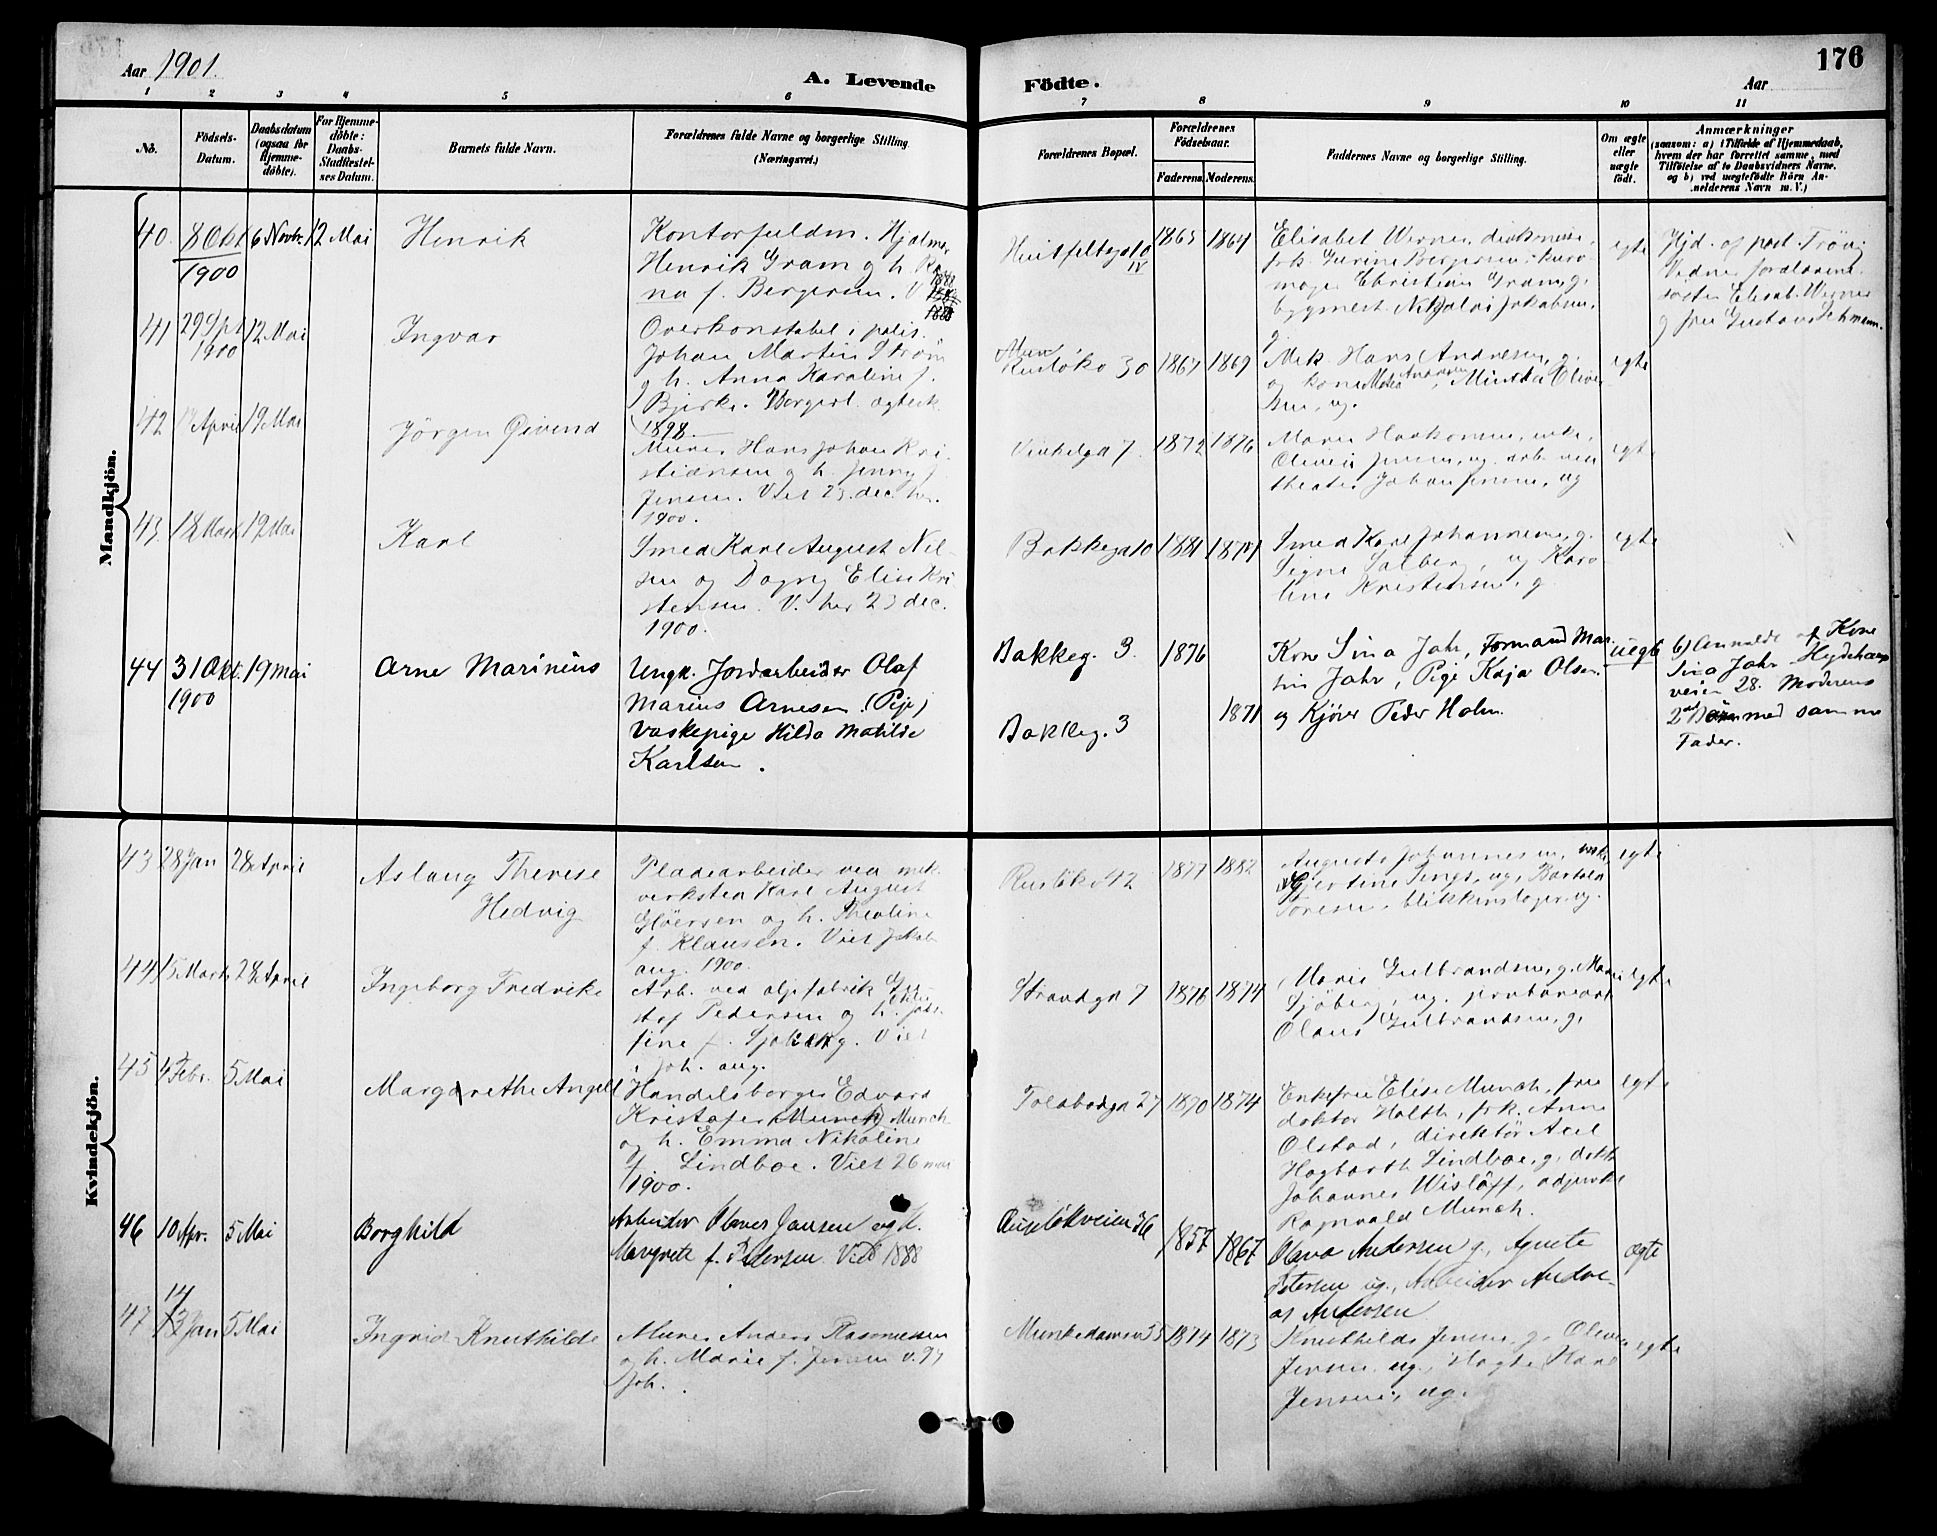 Aar 1901.
A. Levende Födte.
Aar
176
1 2 3 4 5 6 7 8 9 10 11
No.
Födsels-
Datum.
Daabsdatum
(ogsaa for
Hjemme-
döbte).
For Hjemme-
döbte:
Daabs-
Stadfæstel-
ses Datum.
Barnets fulde Navn.
Forældrenes fulde Navne og borgerlige Stilling.
(Næringsvei.)
Forældrenes Bopæl.
Forældrenes
Födselsaar.
Faderens. Moderens.
Faddernes Navne og borgerlige Stilling.
Om ægte
eller
uægte
födt.
Anmærkninger
(saasom: a) i Tilfælde af Hjemmedaab,
hvem der har forrettet samme, med
Tilföielse af to Daabsvidners Navne,
og b) ved uægtefödte Börn An-
melderens Navn m. V.)
Mandkjön.
40. 8 Okt 1900 6 Novbr. 12 Mai
Henrik
Kontorfuldm. Hjalmar
Henrik Gram og h.
na f. Bergersen. V
Huitfeltsgd 10 IV
1865 1864
Elisabet Werner, diakonisse,
frk. Gurine Bergersen,
Christian Gram, g.
bygmest. Nikolai Jakobsen,
g.
egte
Hjd. af past.
Vidner:
söster Elisab. Werner
og fru Gustava
41 29 Spt 1900 12 Mai
Ingvar
Overkonstabel i polit.
Johan Martin Ström
og h. Anna Karoline f.
Bjerke. Borgerl. ægtesk.
1898.
Mun
Rusløkv 30
1867 1869
Mek. Hans Andresen, g.
og kone Andresen, Minda Oliver
sen, ug.
egte
42 April 19 Mai
Jörgen Eivend
Murer Hans Johan Kri
stiansen og h. Jenny f.
Jensen. Viet 23. dec. her
1900.
Vinkelgd 7.
1872 1876
Maren Haakonsen, enke,
Oliver Jensen, ug. arb. ved
theater Johan Jensen, ug
egte
43. 18 Marts 19 Mai
Karl
Smed Karl August Nil-
sen og Dagny Elise Kri
stensen. V. her 23 dec.
1900.
Bakkegd 10
1881
Smed Karl Johannesen, g.
Signe Solberg, ug Karo
line Kristensen, g.
egte
44 31 Okt. 1900 19 Mai
Arne Marinius
Ungk. Jordarbeider Olaf
Marius Arnesen (Pige)
Vaskepige Hilda Matilde
Karlsen.
Bakkeg. 3. 1876
Bakkeg. 3 1871
Kone Sina Jahr, Formand Mar
tin Jahr, Pige Kaja Olsen
og Kjörer Peder Holm
uegte
b) Anmeldt af Kone
Sina Jahr
veien 28. Moderens
2det Barn med samme
Fader.
Kvindekjön.
43 28 Jan 28 April
Aslaug Therese
Hedvig
Pladearbeider ved mek.
verksted Karl August
Glöersen og h. Theoline
f. Klausen. Viet Jakob
aug. 1900.
Rusløkv 42
1877 1882
Augusta Johannesen, enke,
Gjertine Tengs, ug, Bertold
Töresen, blikkenslager, ug.
egte
44 15 Marts 28 April
Ingeborg Fredrike
Arb. ved oljefabrik Gu
staf Pedersen og h.
fine f. Sjöberg. Viet
i Joh. aug.
Strandgd 7
1876 1874
Maris Gulbrandsen, g. Marie
Sjöberg, ug.
Olaus Gulbrandsen, g.
egte
45 4 Febr. 5 Mai
Margarethe Angell
Handelsborger Edvard
Kristofer Munch
og h. Emma Nikoline
f. Lindboe. Viet 26 mai
1900.
Toldbodgd 27
1870 1874
Enkefru Elise Munch, fru
doktor Holth, frk. Anne
Olstad, direktör Axel
Hagbarth Lindboe, g, doktor
Johannes Wislöff, adjunkt
Ragnvald Munch.
egte
46 10 Apr. 5 Mai
Borghild
Arbeider Olaves Jansen og H.
Margrete f. Pedersen. Viet 1888
Ruselökveien 36
1857 1867
Olava Andersen g., Agnete
Petersen ug., Arbeider Andre-
as Andersen
ægte
47 14 Jan 5 Mai
Ingrid Knuthilde
Murer Anders Rasmussen
og h. Marie f. Jensen v. 97
Joh.
Munkedamsv 55
1874 1873
Knuthilde Jensen, g. Oliver
Jensen ug., Hans
Jensen, ug.
egte